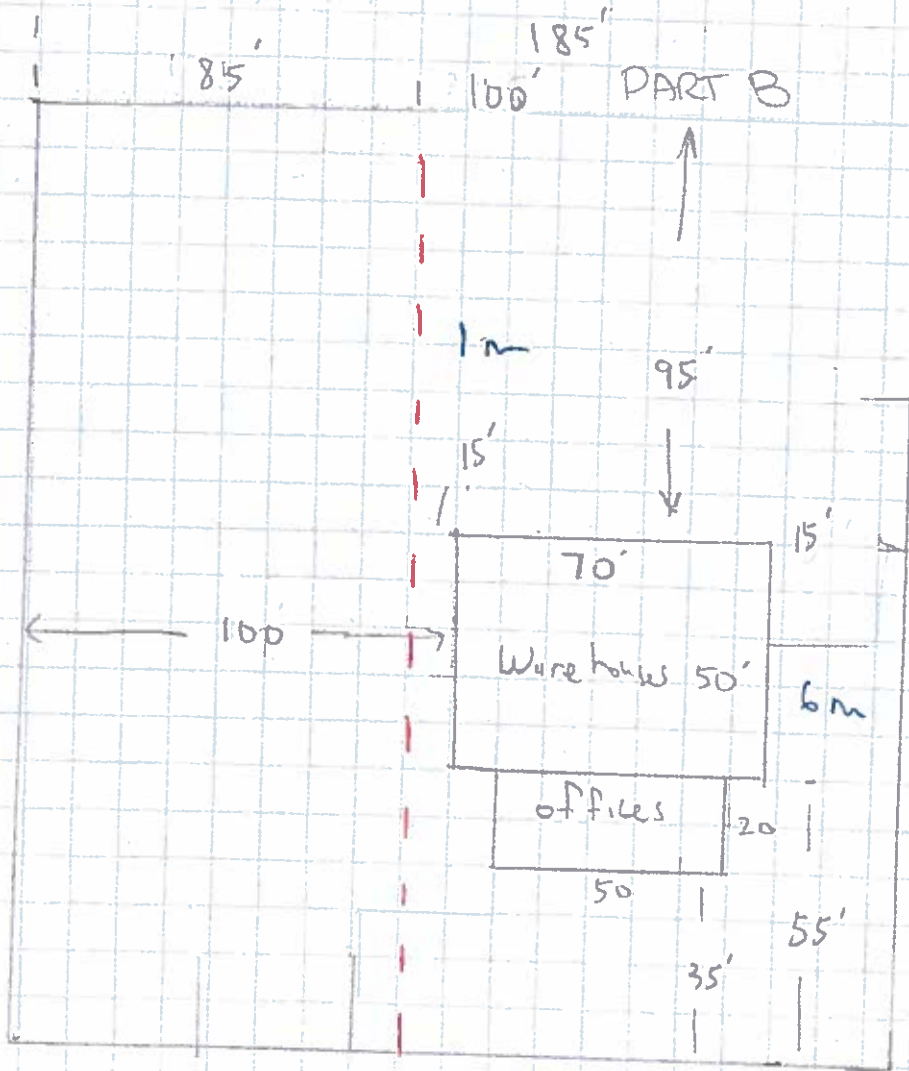 185'
85'
100'
PART B
1 m
95'
15'
15'
70'
100
Warehouses 50'
6 m
offices
20
50
55'
35'